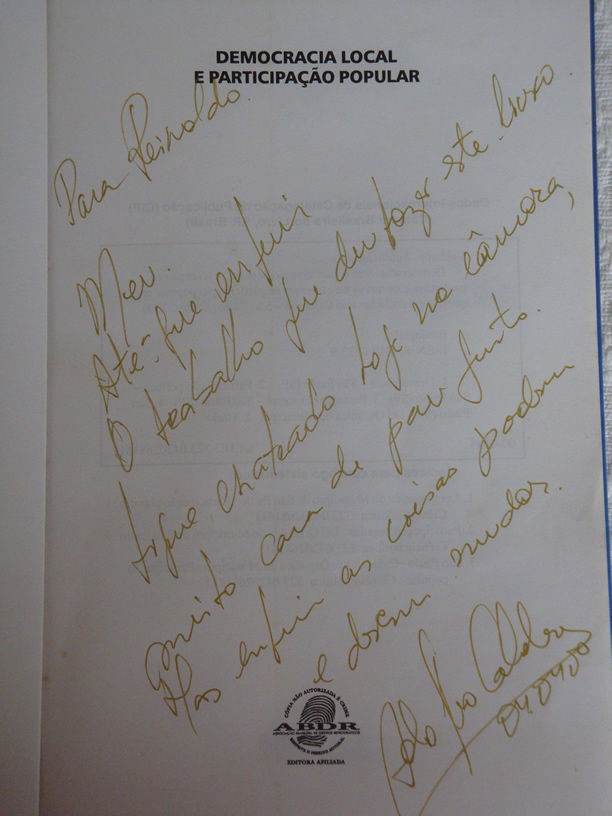 DEMOCRACIA LOCAL
E PARTICIPAÇÃO POPULAR
Para Reinaldo.
Meu.
Até que enfim
O trabalho que deu fazer este livro.
fiquei chateado hoje na câmara,
muito cara de pau junto.
Mas enfim as coisas podem
e devem mudar.
04.04.00
CÓPIA NÃO AUTORIZADA É CRIME
ABDR
ASSOCIAÇÃO BRASILEIRA DE DIREITOS REPROGRÁFICOS
RESPEITE O DIREITO AUTORAL
EDITORA AFILIADA